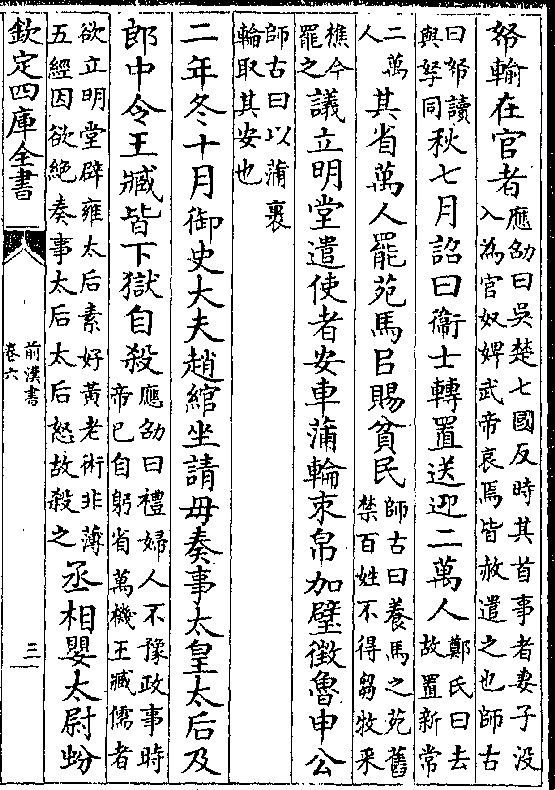 帑輸在官者應劭曰吳楚七國反時其首事者妻子沒入為官奴婢武帝哀焉皆赦遣之也師古
曰帑讀與孥同秋七月詔曰衞士轉置送迎二萬人鄭氏曰去故置新常
二萬人其省萬人罷苑馬㠯賜貧民師古曰養馬之苑舊禁百姓不得芻牧采
樵今罷之議立明堂遣使者安車蒲輪束帛加璧徵魯申公
師古曰以蒲裹輪取其安也
二年冬十月御史大夫趙綰坐請毋奏事太皇太后及
郎中令王臧皆下獄自殺應劭曰禮婦人不豫政事時帝已自躬省萬機王臧儒者
欲立明堂辟雍太后素好黃老術非薄五經因欲絶奏事太后太后怒故殺之丞相嬰太尉蚡
欽定四庫全書
前漢書
卷六
三